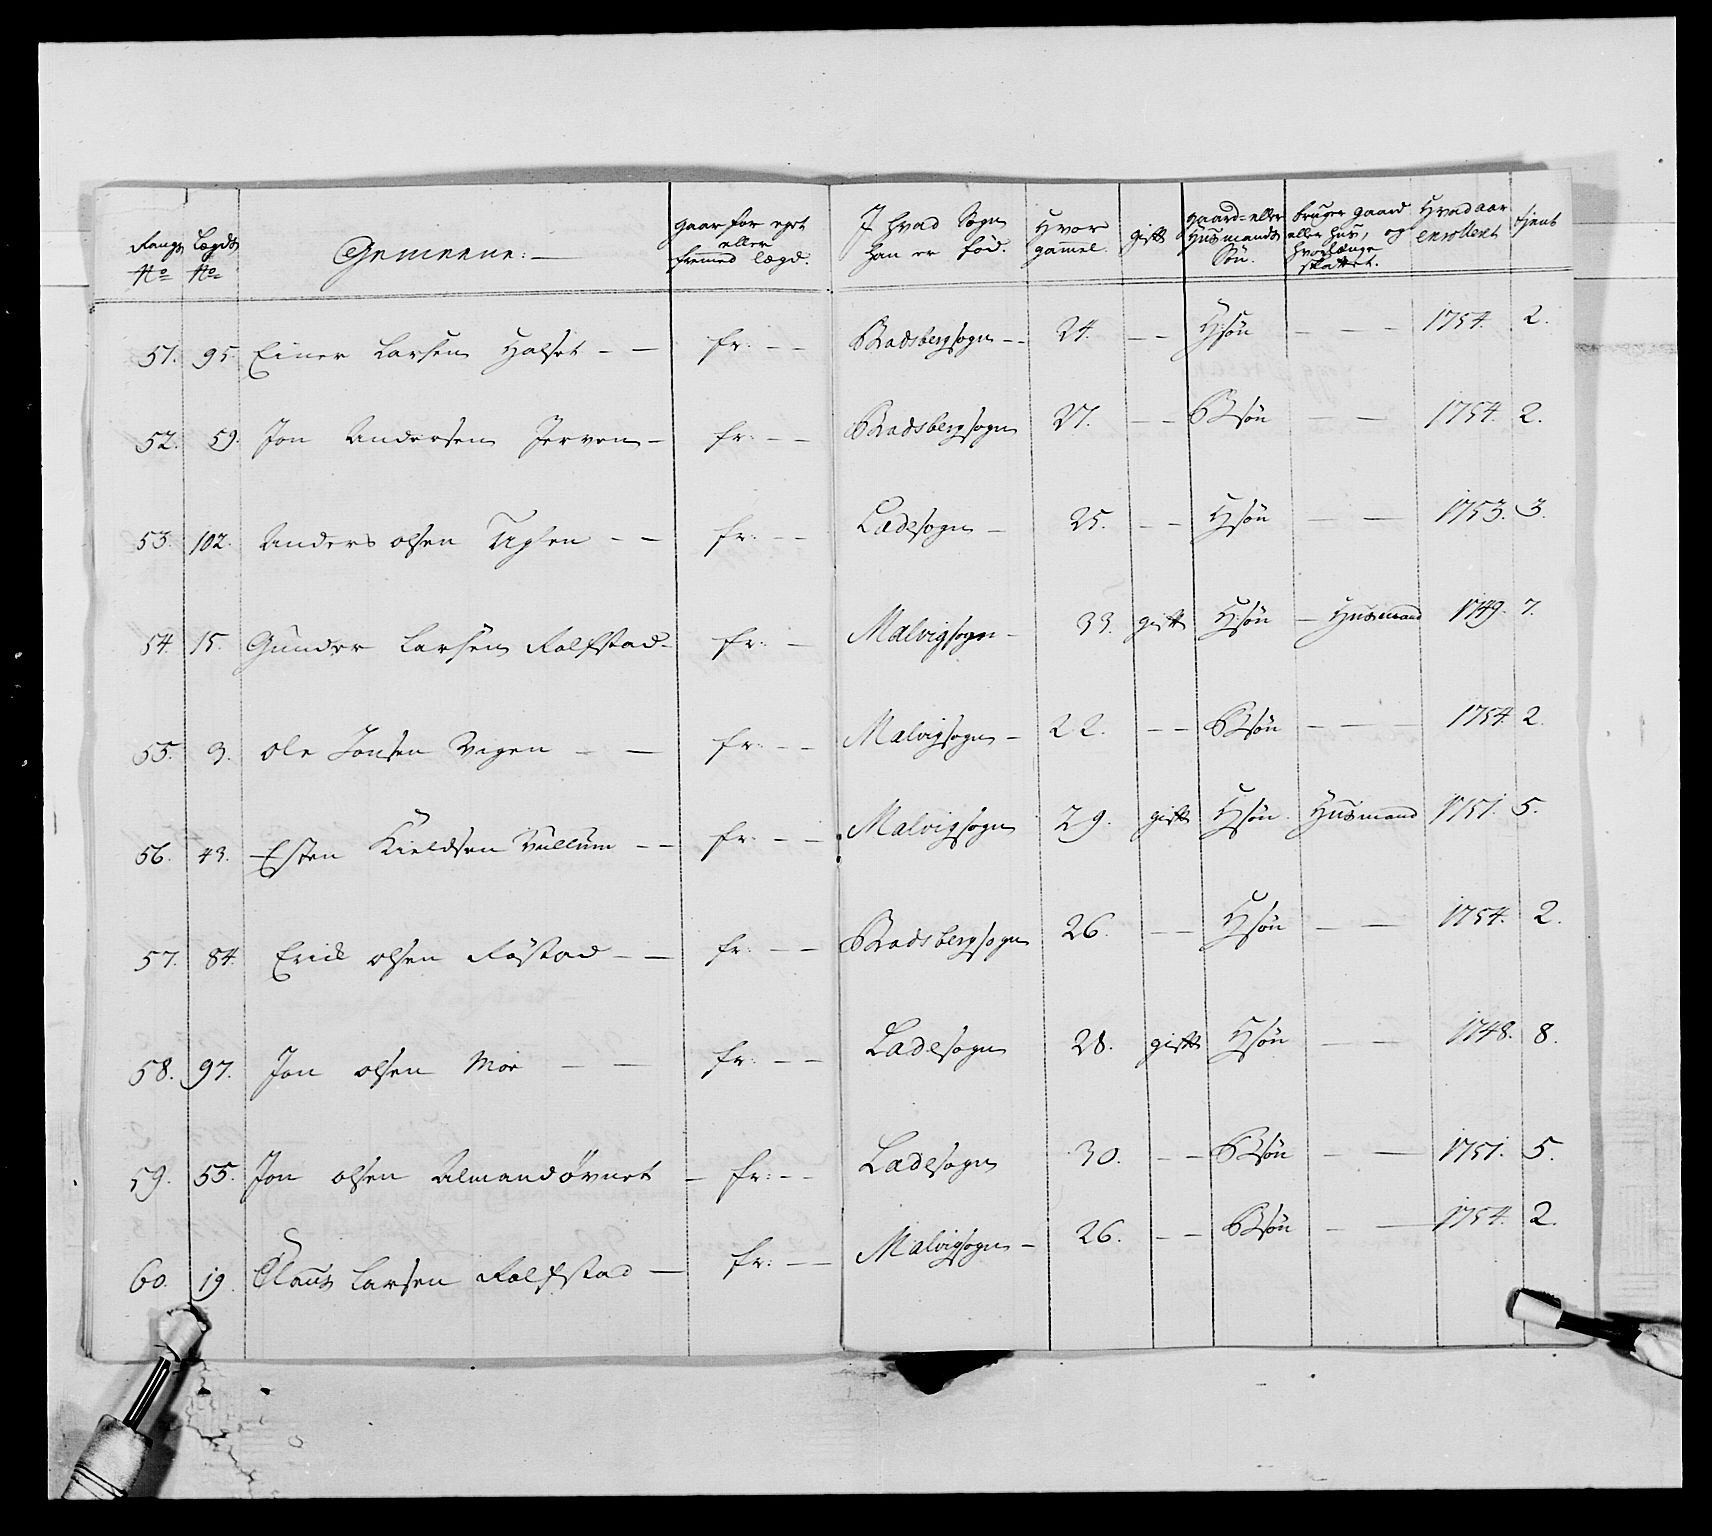 Rangs No | Lægds No | Gemeene: | gaar for eget eller fremed lægd. | I hvad Sogn han er fød. | Hvor gamel | gift | gaard= eller Huusmands Søn. | bruger gaard eller huus, og hvorlænge skattet. | Hvad aar enrollert | tient
51. | 95. | Einer Larsen Halset – – | fr: – – | Bradsbergsogn – – | 24. | – – | H:søn | – – – | 1754. | 2.
52. | 59. | Jon Andersen Jerven – | fr: – – | Bradsbergsogn | 27. | – – | B:søn | – – | 1754. | 2.
53. | 102. | Anders olsen – – | fr: – – | Ladesogn – | 25. | – – | H:søn | – – | 1753. | 3.
54. | 15. | Gunder Larsen Rolfstad – | fr: – | Malvigsogn – | 33. | gift | H:søn | – Huusmand | 1749. | 7.
55. | 3. | Ole Jonsen Vigen – – | fr: – – | Malvigsogn – | 22. | – – | B:søn | – – – | 1754. | 2.
56. | 43. | Esten Kieldsen Vullum – – | fr: – – | Malvigsogn | 29. | gift | H:søn. | Huusmand | 1751. | 5.
57. | 84. | Erick olsen Røstad – – | fr: – – | Bradsbergsogn | 26. | – – | H:søn | – – | 1754. | 2.
58. | 97. | Jon olsen Moe – – | fr: – – | Ladesogn | 28. | gift | H:søn | – – | 1748. | 8.
59. | 55. | Jon olsen – | fr: – – | Ladesogn | 30. | – – | B:søn | – – | 1751. | 5.
60. | 19. | Claus Larsen Rolfstad – | fr: – – | Malvigsogn – | 26. | – – | B:søn | – – | 1754. | 2.